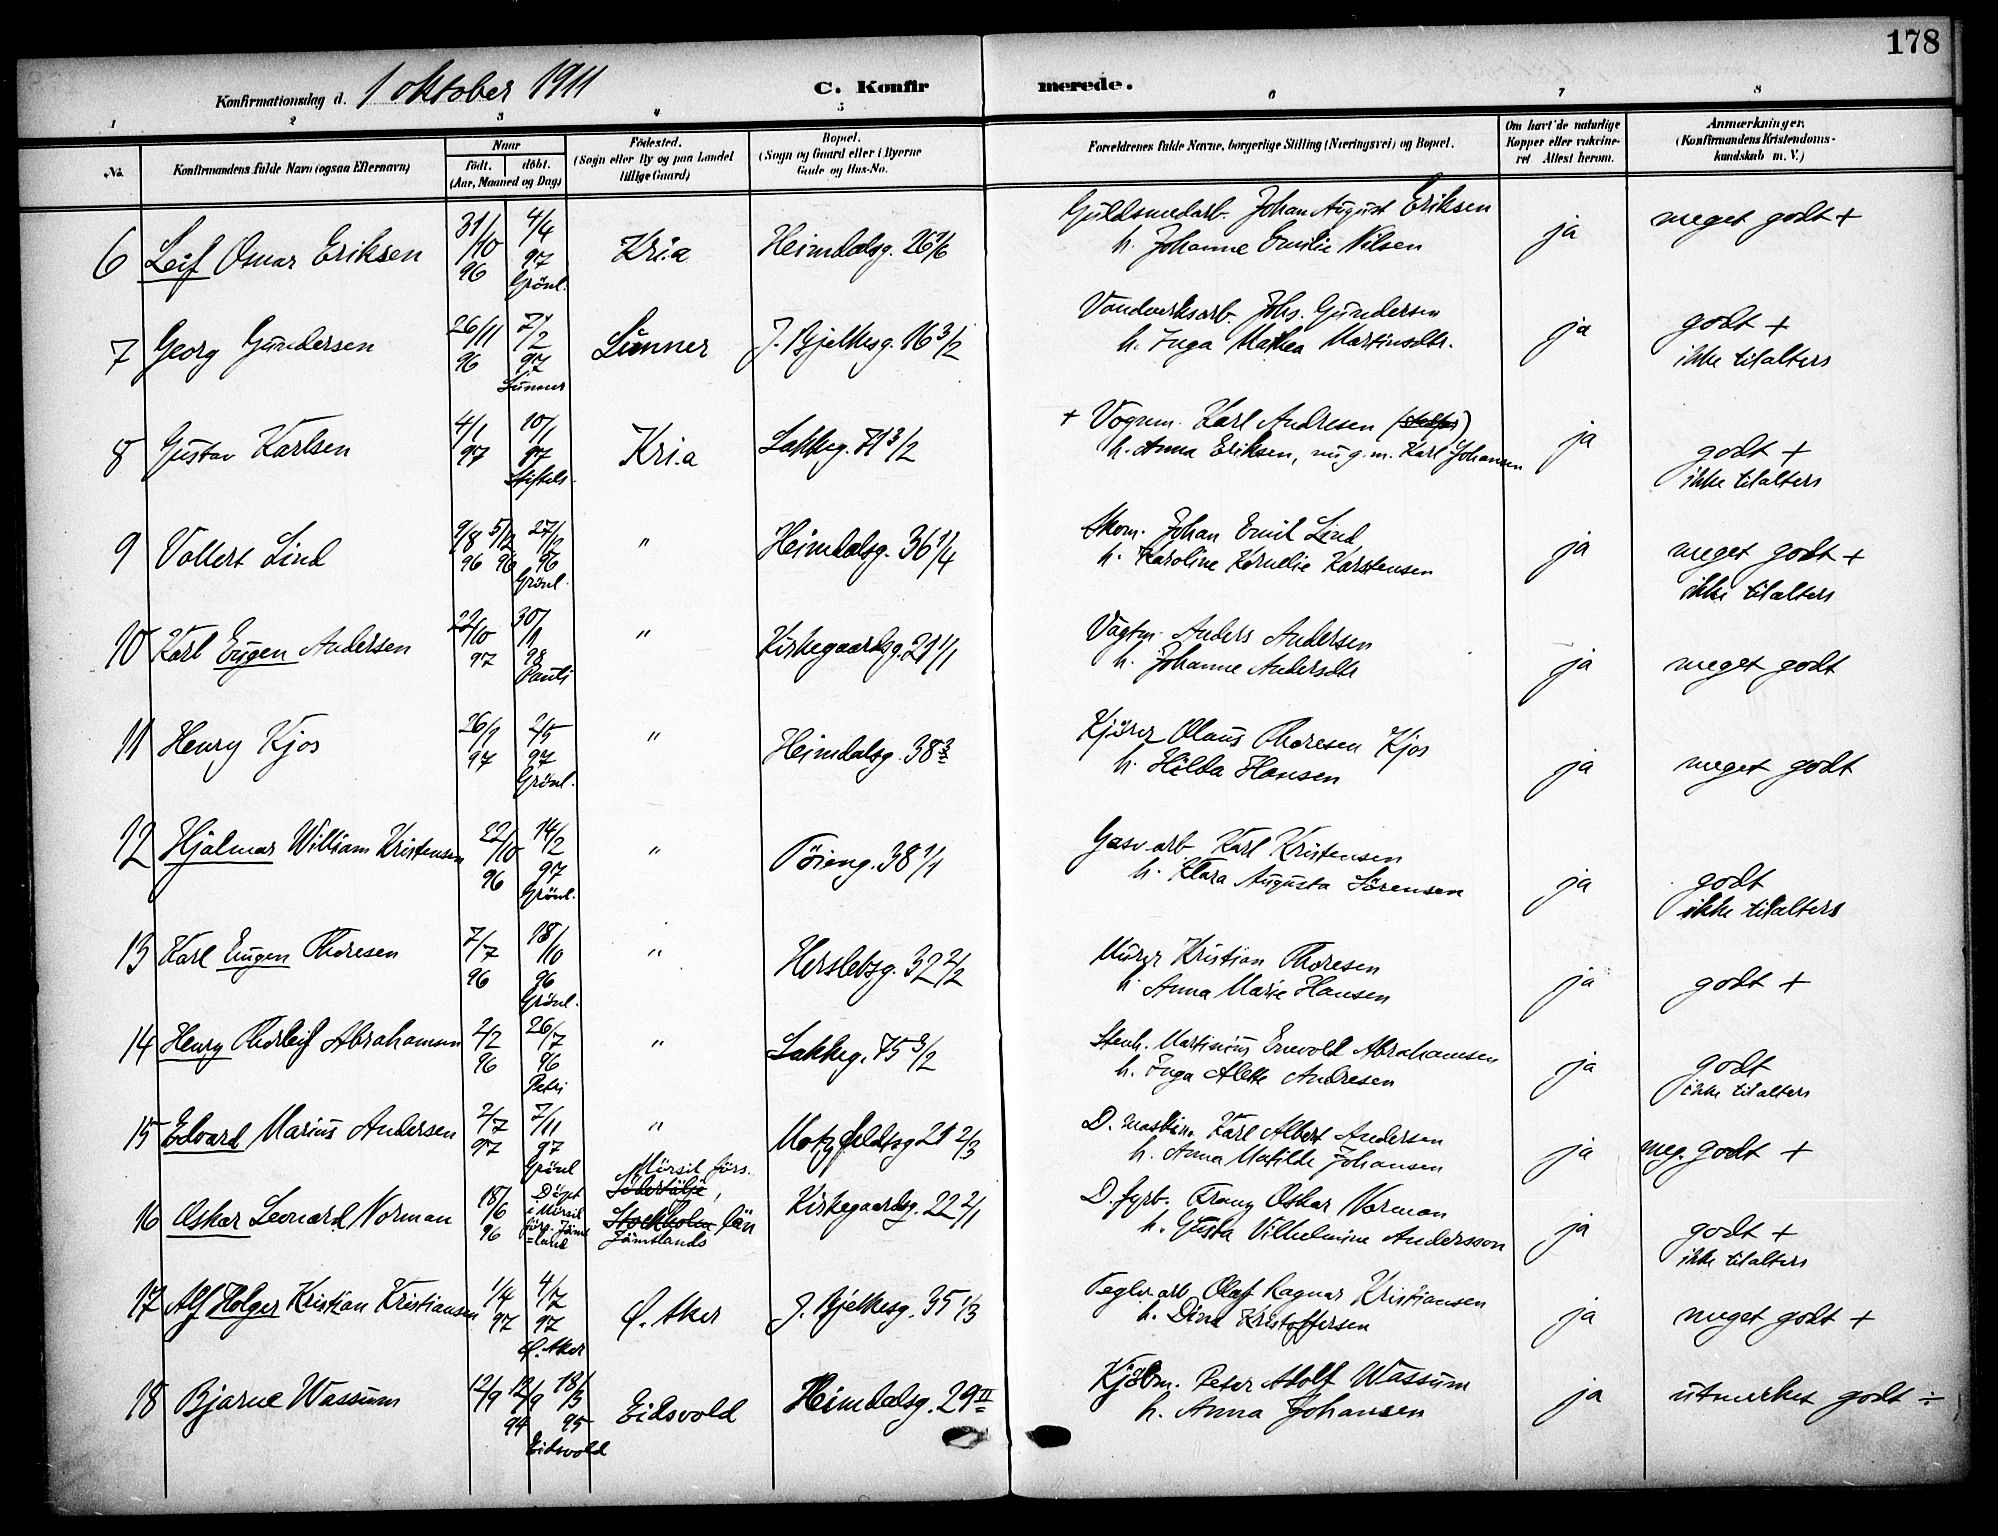 178
Konfirmationsdag d. 1 oktober 1911
C. Konfirmerede.
1 2 3 4 5 6 7 8
No.
Konfirmandens fulde Navn (ogsaa Efternavn)
Naar
födt. döbt.
(Aar, Maaned og Dag)
Födested.
(Sogn eller By og paa Landet
tillige Gaard)
Bopæl.
(Sogn og Gaard eller i Byerne
Gade og Hus-No.
Forældrenes fulde Navne, borgerlige Stilling (Næringsvei) og Bopæl.
Om havt de naturlige
Kopper eller vakcine-
ret Attest herom.
Anmærkninger.
(Konfirmandens Kristendoms-
kundskab m. V.)
6 Leif Osvar Eriksen 31/10 96 4/4 97 Grönl. Kria Heimdalsg. 26 Guldsmedarb. Johan August Eriksen
h. Johanne Emilie Nilsen ja meget godt +
7 Georg Gundersen 26/11 96 7/2 97 Lunner Lunner J. Bjelkesg. 16 3/2 Vandverksarb. Johs. Gundersen
h. Inga Mathea Martinsdtr. ja godt +
ikke titalters
8 Gustav Karlsen 4/1 97 10/1 97 Kria Lakkeg. 71 3/2 + Vognm. Karl Andresen
h. Anna Eriksen, nu g. m. Karl Johansen ja godt +
ikke titalters
9 Vollert Lind 9/8 96 5/12 96 27/12 96 Grönl. " Heimdalsg. 36 1/4 Skom. Johan Emil Lind
h. Karoline Kornelie Karstensen ja meget godt +
ikke titalters
10 Karl Eugen Andersen 22/10 97 30/1 98 Pauls " Kirkegaardsg. 21 1/1 Vagtm. Anders Andersen
h. Johanne Andersdtr ja meget godt
11 Henry Kjos 97 2/5 97 Grönl. " Heimdalsg. 38 Kjörer Olaus Thoresen Kjos
h. Hilda Hansen ja meget godt
12 Hjalmar William Kristensen 22/10 96 14/2 97 Grönl. " Töieng. 38 1/1 Gasv.arb Karl Kristensen
h. Klara Augusta Sörensen ja godt
ikke titalters
13 Karl Eugen Thoresen 7/7 96 18/10 96 Grönl. " Herslebsg. 32 2/2 Murer Kristian Thoresen
h. Anna Marie Hansen ja godt +
14 Henry Thorleif Abrahamsen 2/2 96 26/7 96 Petri " Lakkeg. 75 3/2 Stenh. Martinius Enevold Abrahamsen
h. Inga Alette Andresen ja godt
ikke titalters
15 Edvard Marius Andersen 2/7 97 7/11 97 Grönl " Motzfeldtsg 21 2/3 D. maskin. Karl Albert Andersen
h. Anna Matilde Johansen ja meg. godt +
16 Oskar Leonard Norman 18/6 96 Döpt i Mörsil förs. Jämt-land Mörsil förs.
Södertälje,
Stockholm län
Jämtlands Kirkegaardsg. 22 2/1 D. fyrb. Franz Oskar Norman
h. Gusta Vilhelmine Andersson ja godt +
ikke titalters
17 Alf Holger Kristian Kristiansen 1/4 97 4/7 97 Ö. Aker Ö. Aker J. Bjelkesg. 35 1/3 Teglv.arb Olaf Ragnar Kristiansen
h. Dina Kristoffersen ja meget godt +
18 Bjarne Wassum 12/9 12/9 94 18/3 95 Eidsvold Eidsvold Heimdalsg. 29 II Kjöbm. Peter Adolf Wassum
h. Anna Johansen ja utmerket godt ÷